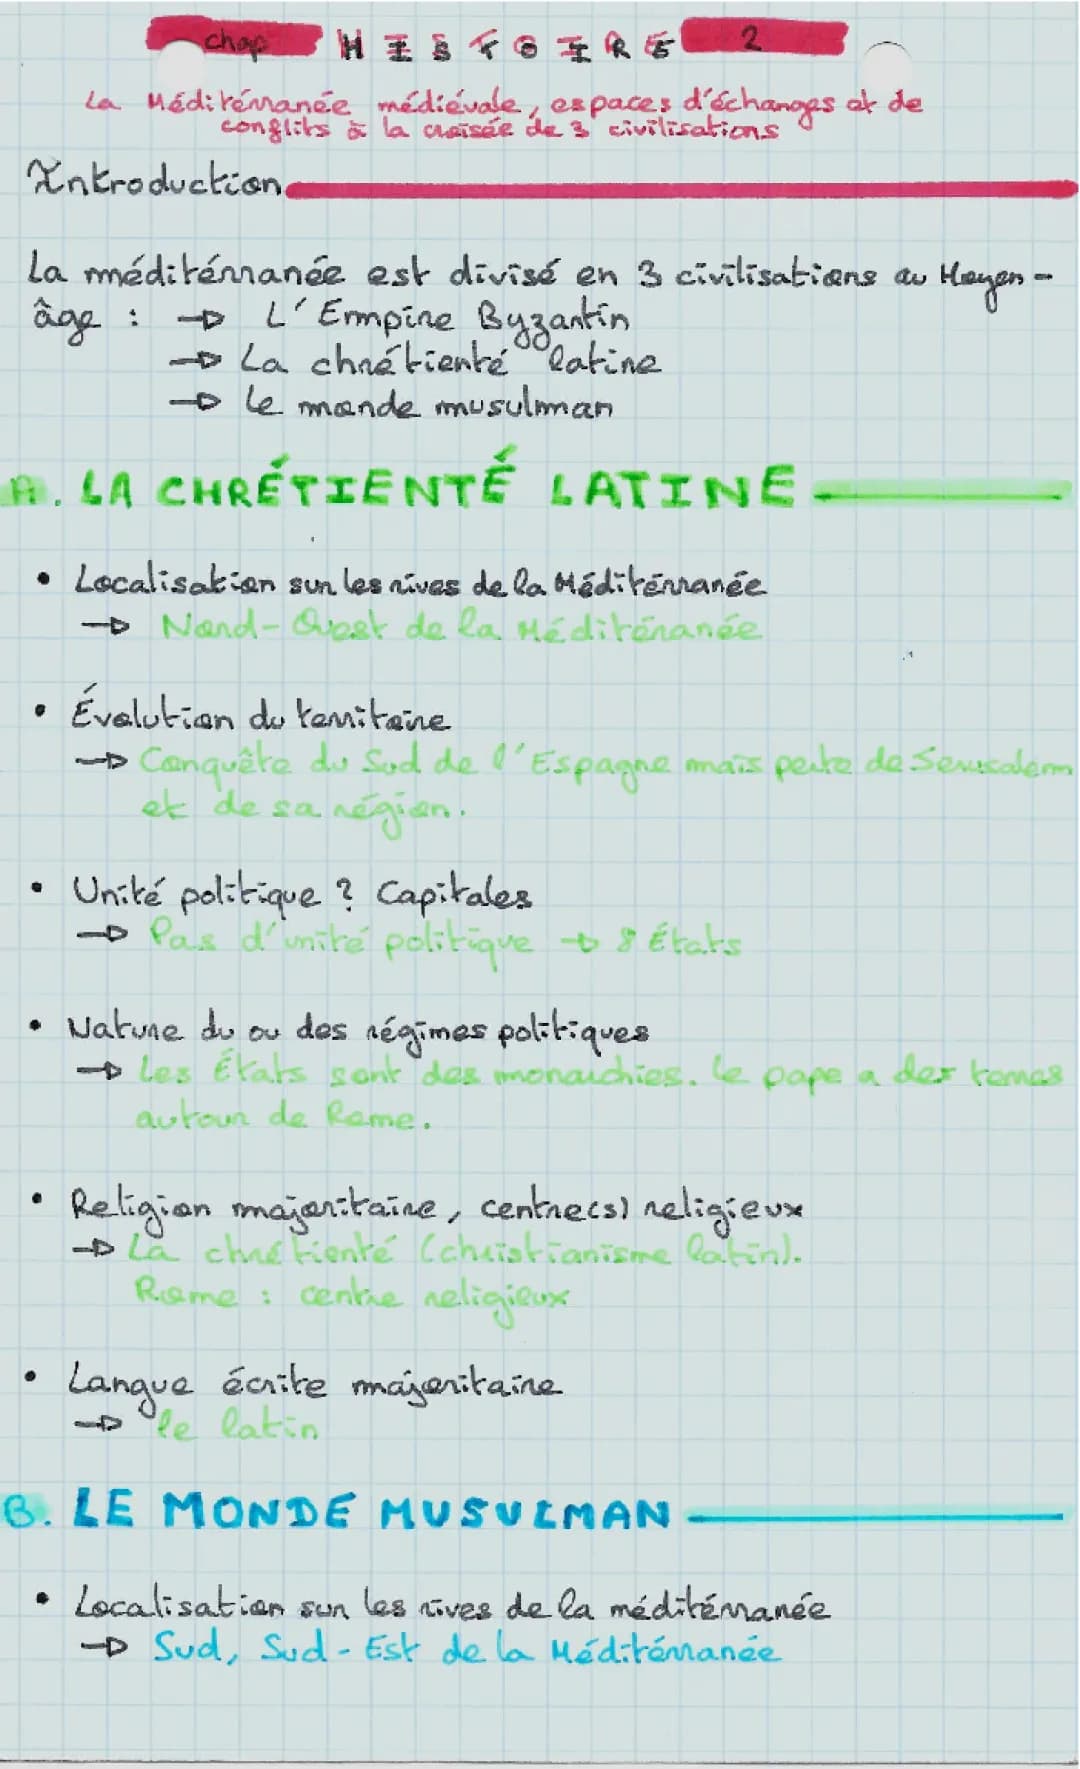 chap HISTOIRE 2
La Méditérranée médiévale, espaces d'échanges et de
conflits à la croisée de 3 civilisations
Introduction
La méditérranée est divisé en 3 civilisations au Moyen-
âge : → L'Empire Byzantin
→ La chrétienté latine
→ Le monde musulman
A. LA CHRÉTIENTÉ LATINE
• Localisation sur les rives de la Méditérranée
→ Nord-Ouest de la Méditéranée
• Évolution du territoire
→ Conquête du Sud de l'Espagne mais perte de Jerusalem
et de sa région.
• Unité politique ? Capitales
→ Pas d'unité politique → 8 États
• Nature du ou des régimes politiques
→ Les États sont des monarchies. Le pape a des terres
autour de Rome.
• Religion majoritaire, centre(s) religieux
→ La chrétienté (christianisme latin).
Rome : centre religieux
• Langue écrite majoritaire
→ le latin
B. LE MONDE MUSULMAN
• Localisation sur les rives de la méditérranée
→ Sud, Sud-Est de la Méditérranée